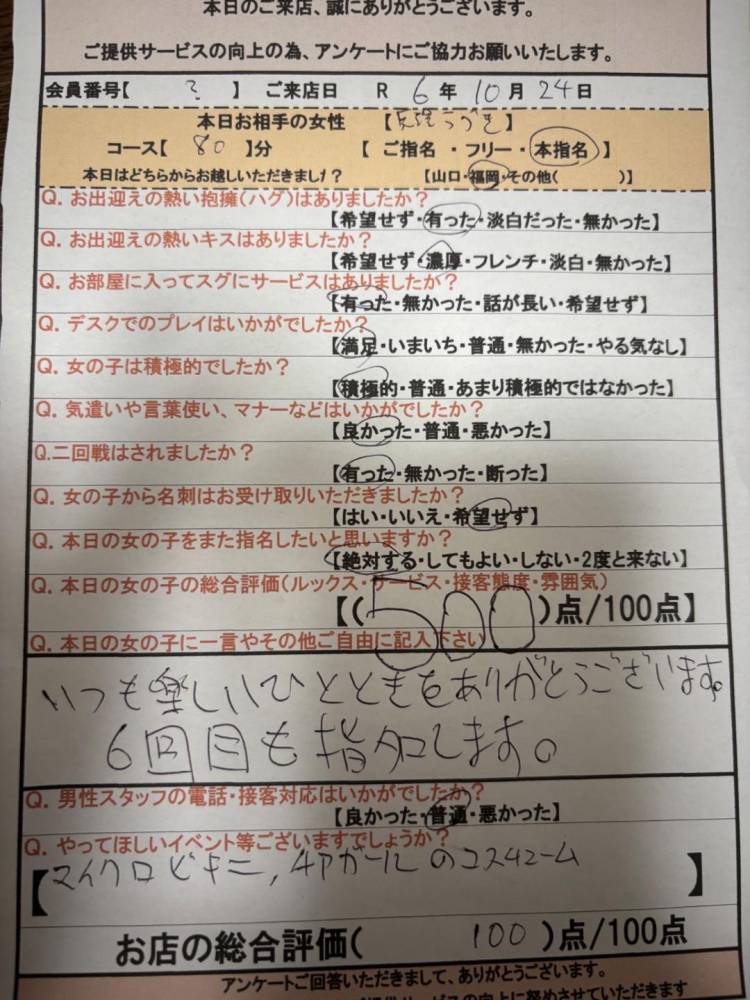 本日のご来店、誠にありがとうございます。
ご提供サービスの向上の為、アンケートにご協力お願いいたします。
会員番号【 ? 】 ご来店日 R 6年 10月 24日
本日お相手の女性 【 うづき】
コース【 80 】分 【 ご指名 ・ フリー ・ 本指名 】
本日はどちらからお越しいただきました? 【山口・福岡・その他( )】
Q. お出迎えの熱い抱擁(ハグ)はありましたか?
【希望せず・有った・淡白だった・無かった】
Q. お出迎えの熱いキスはありましたか?
【希望せず・濃厚・フレンチ・淡白・無かった】
Q. お部屋に入ってスグにサービスはありましたか?
【有った・無かった・話が長い・希望せず】
Q. デスクでのプレイはいかがでしたか?
【満足・いまいち・普通・無かった・やる気なし】
Q. 女の子は積極的でしたか?
【積極的・普通・あまり積極的ではなかった】
Q. 気遣いや言葉使い、マナーなどはいかがでしたか?
【良かった・普通・悪かった】
Q.二回戦はされましたか?
【有った・無かった・断った】
Q. 女の子から名刺はお受け取りいただきましたか?
【はい・いいえ・希望せず】
Q. 本日の女の子をまた指名したいと思いますか?
【絶対する・してもよい・しない・2度と来ない】
Q. 本日の女の子の総合評価(ルックス・サービス・接客態度・雰囲気)
【( 500 )点/100点】
Q. 本日の女の子に一言やその他ご自由に記入下さい
いつも楽しいひとときをありがとうございます。
6回目も指名します。
Q. 男性スタッフの電話・接客対応はいかがでしたか?
【良かった・普通・悪かった】
Q. やってほしいイベント等ございますでしょうか?
【マイクロビキニ, チアガールのコスチューム 】
お店の総合評価( 100 )点/100点
アンケートご回答いただきまして、ありがとうございます。
サービスの向上に努めさせていただきます